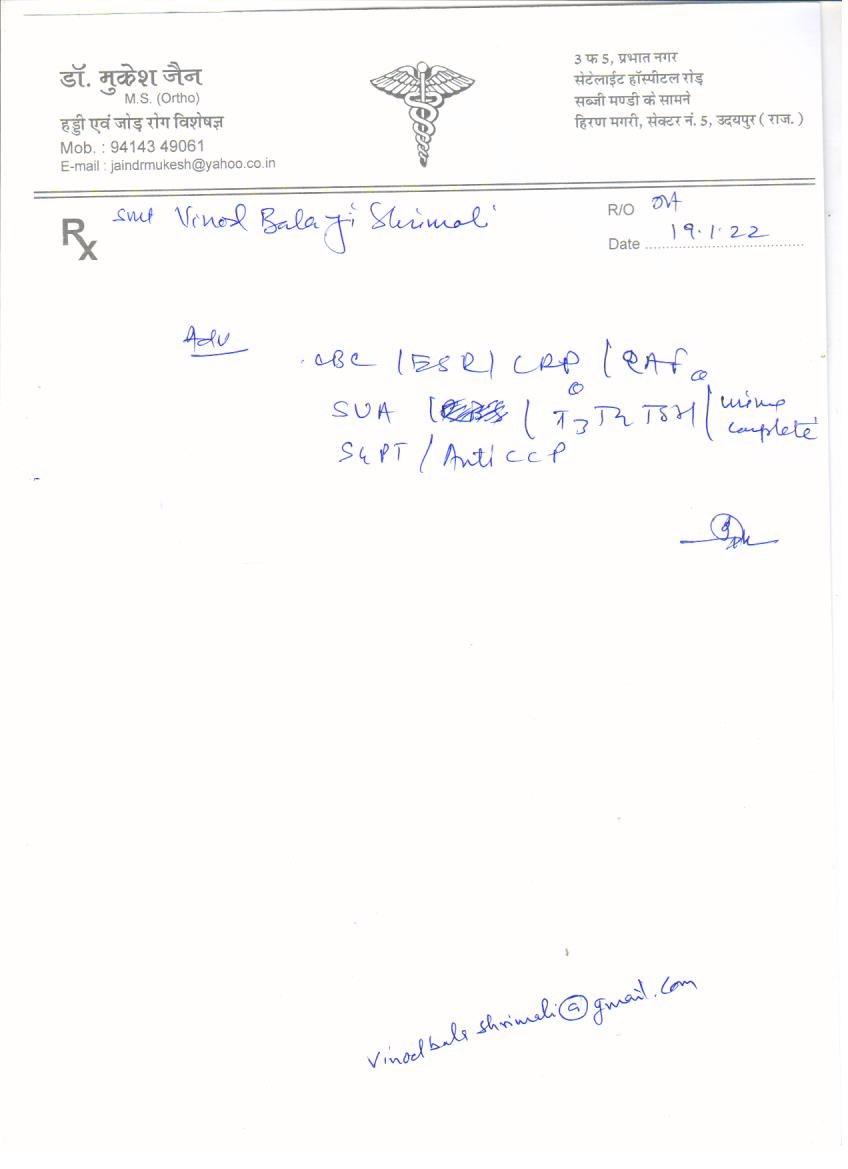 डॉ. मुकेश जैन
M.S. (Ortho)
हड्डी एवं जोड़ रोग विशेषज्ञ
Mob. : 94143 49061
E-mail : jaindrmukesh@yahoo.co.in
3 फ 5, प्रभात नगर
सेटेलाईट हॉस्पीटल रोड़
सब्जी मण्डी के सामने
हिरण मगरी, सेक्टर नं. 5, उदयपुर ( राज. )
Rx
Smt Vinod Bala ji Shrimali
R/O
Date 19.1.22
Adv
CBC / ESR / CRP / RAF
SUA / / T3 T4 TSH / urine
complete
SGPT / Anti CCP
vinodbalashrimali@gmail.com